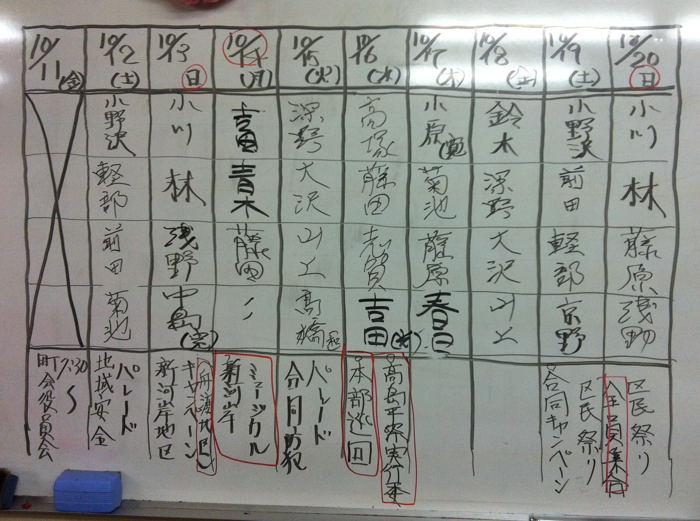 10/11(金)
町会役員会
7:30〜
10/12(土)
小野沢
軽部
前田
菊池
パレード
地域安全
10/13(日)
小川
林
浅野
中島
キャンペーン
新河岸地区
10/14(月)
吉田
青木
藤田
〃
ミュージカル
新河岸
10/15(火)
深野
大沢
山上
高橋
パレード
合同防犯
10/16(水)
高塚
藤田
志賀
吉田
本部巡回
10/17(木)
小原
菊池
藤原
春日
高島平祭実行本
10/18(金)
鈴木
深野
大沢
山上
10/19(土)
小野沢
前田
軽部
京野
区民祭り
合同キャンペーン
10/20(日)
小川
林
藤原
浅野
区民祭り
全員集合